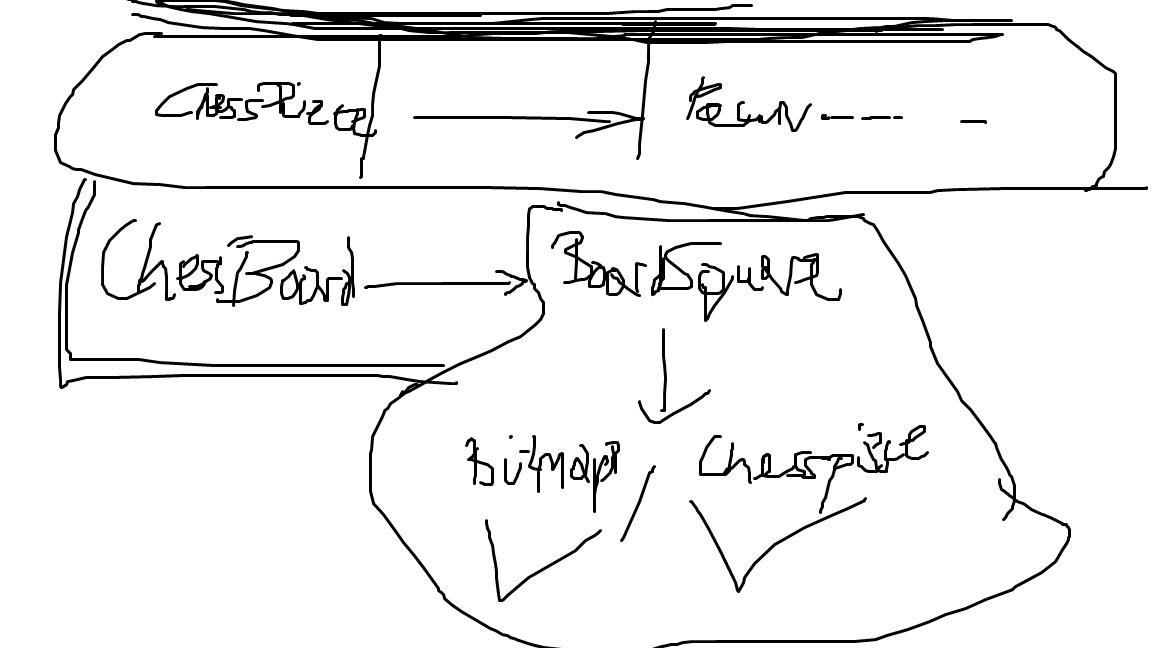 ChessPiece
ChessBoard BoardSquare
Bitmap Chesspiece